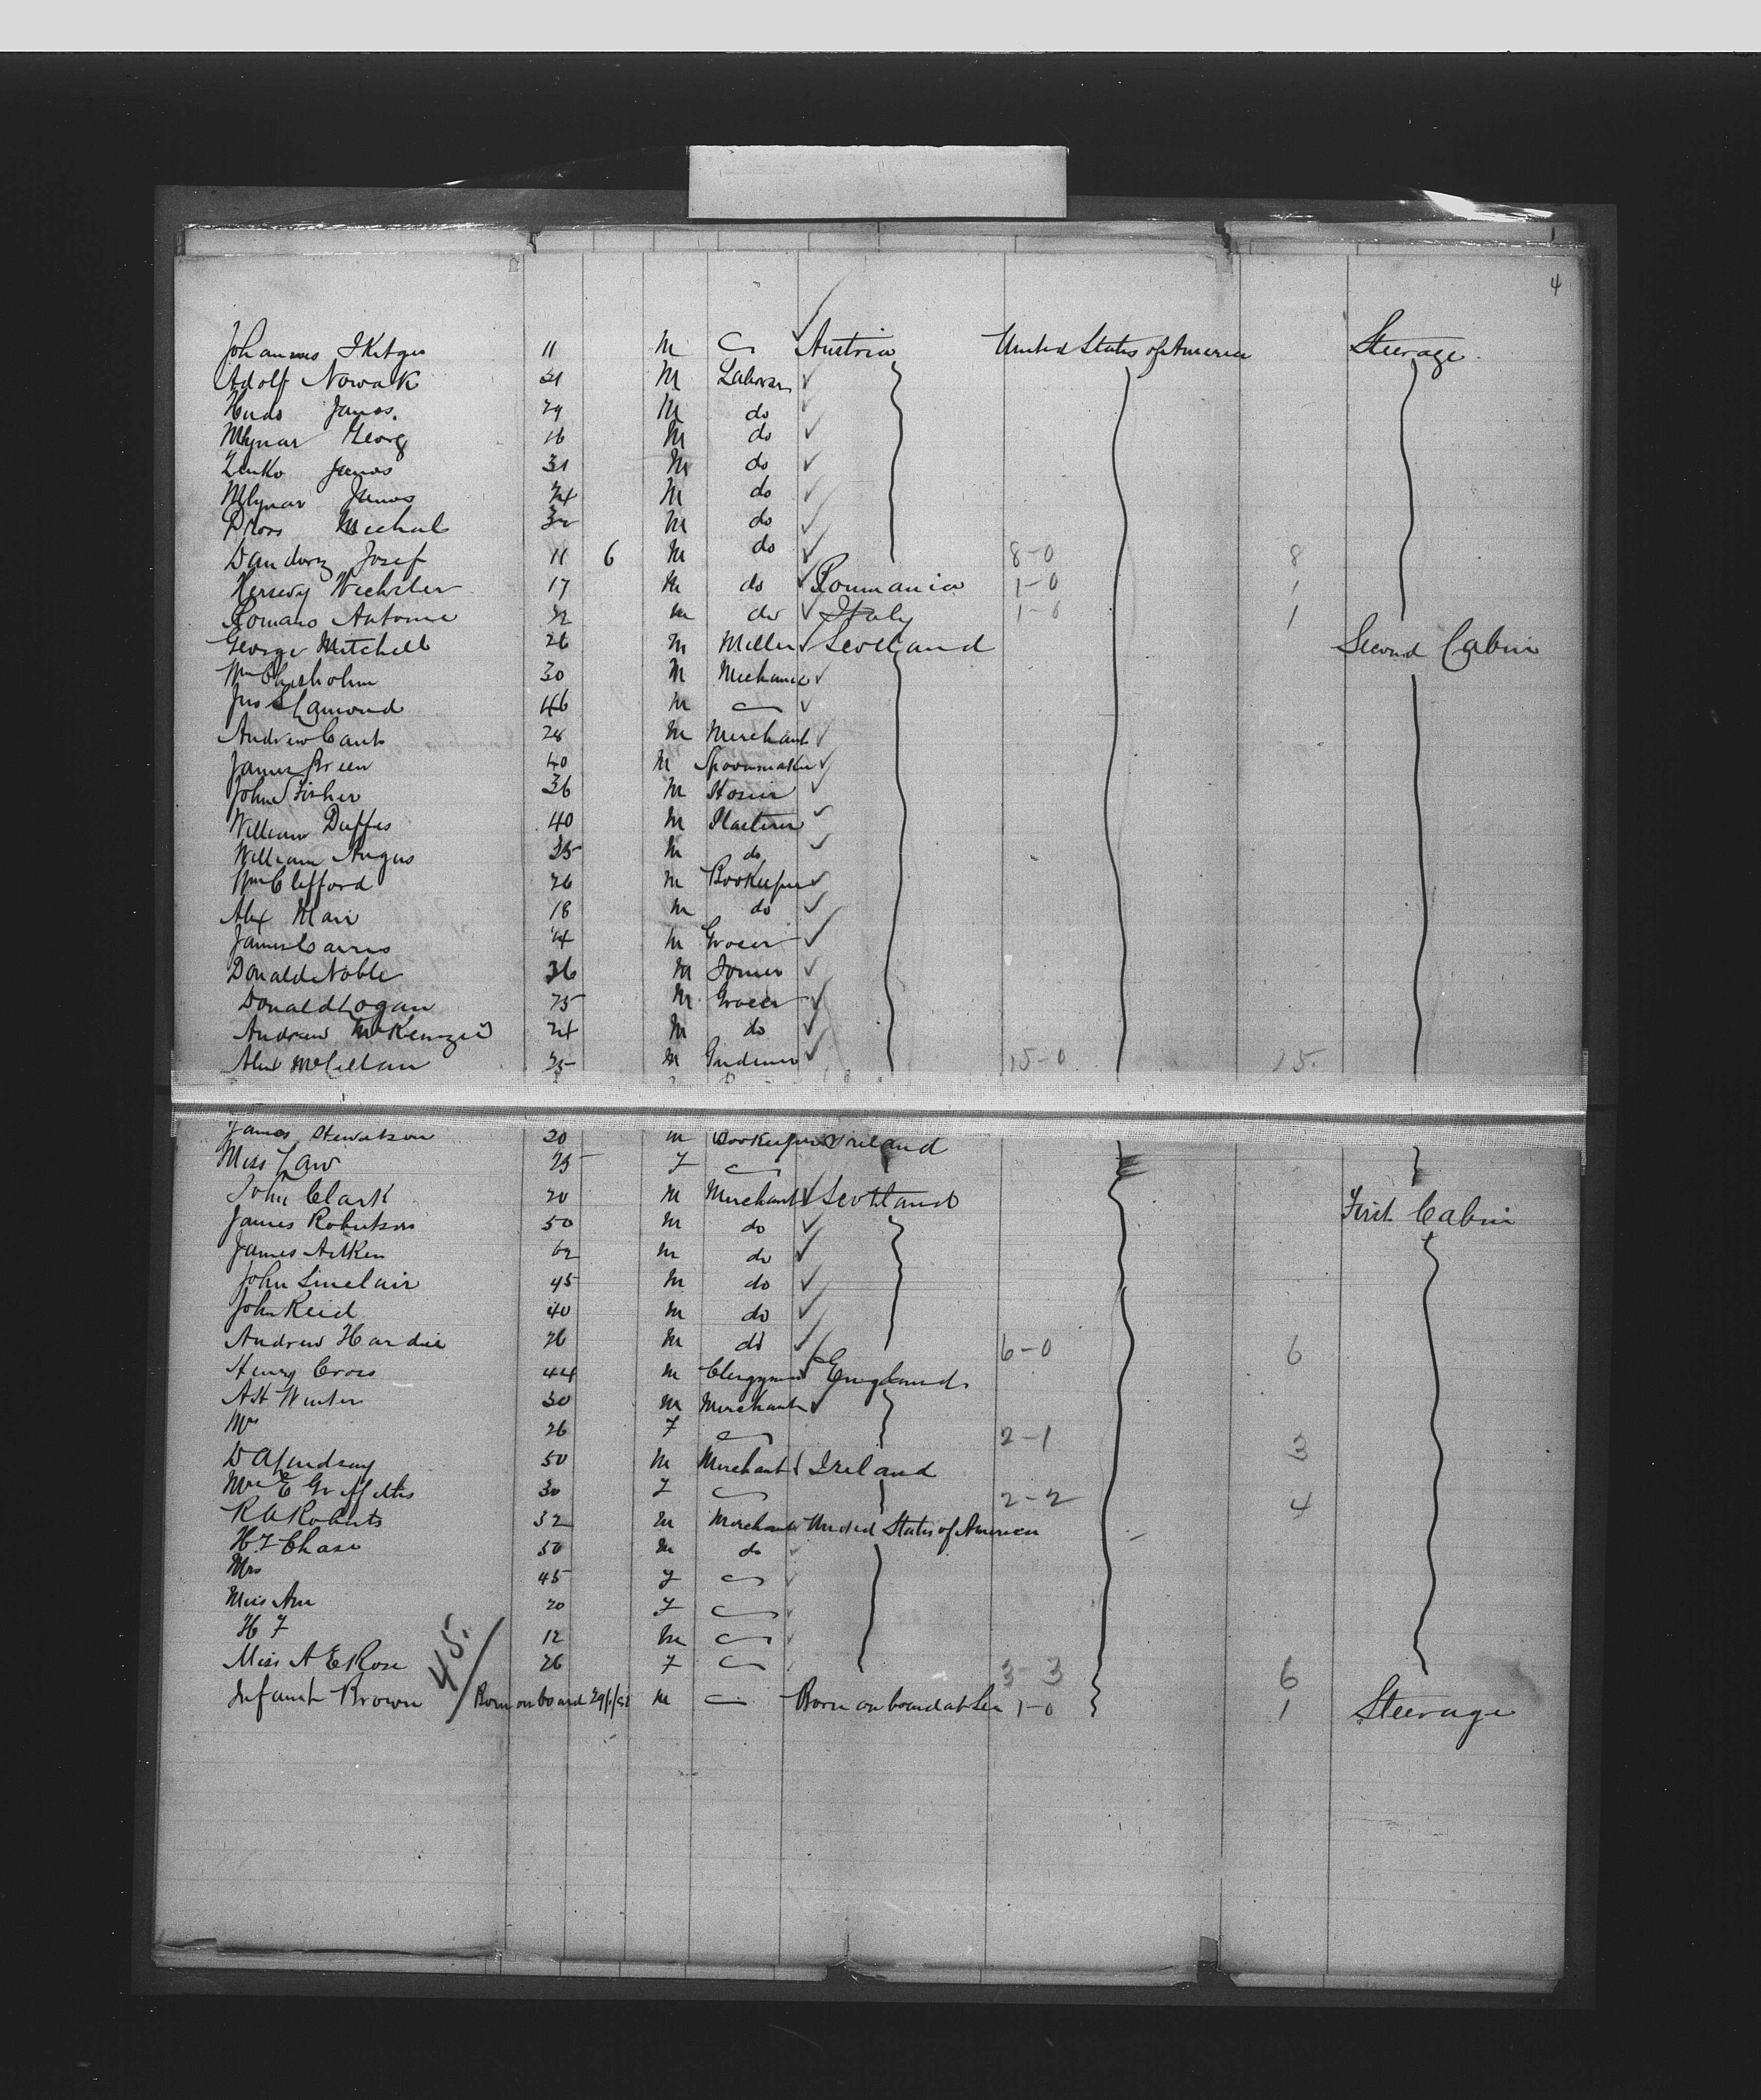 4
Johannes 11 M Austria United States of America Steerage
Adolf Nowak 31 M Laborer
Janos 29 M do
Mlynar Georg 16 M do
Janos 31 M do
Mlynar Janos 24 M do
Michal 32 M do
Josef 11 6 M do 8-0 8
Wechsler 17 M do Roumania 1-0 1
Romano Antonio 32 M do Italy 1-0 1
George Mitchell 26 M Miller Scotland Second Cabin
Wm Chisholm 30 M Mechanic
Jno Lamond 46 M
Andrew Cant 28 M Merchant
James Green 40 M Spoonmaker
John Fisher 36 M Hosier
William Duffes 40 M Plasterer
William Angus 35 M do
Wm Clifford 26 M Bookeeper
Alex Mair 18 M do
James M Grocer
Donald Noble 36 M Joiner
Donald Logan 25 M Grocer
Andrew McKenzie 24 M do
Alex 25 M Gardener 15-0 15
James 20 M Bookeeper Ireland
Miss Law 25 F
John Clark 20 M Merchant Scotland First Cabin
James Robertson 50 M do
James Aitken 62 M do
John Sinclair 45 M do
John Reid 40 M do
Andrew Hardie 26 M do 6-0 6
Henry Cross 44 M Clergyman England
A H Winter 30 M Merchant
Mrs 26 F 2-1 3
D A Lindsay 50 M Merchant Ireland
Mrs E Griffiths 30 F 2-2 4
R A Roberts 32 M Merchant United States of America
H F Chase 50 M do
Mrs 45 F
Miss Ann 20 F
H F 12 M
Miss A E Rose 26 F 3-3 6
45.
Infant Brown Born on board M Born on board at Sea 1-0 1 Steerage